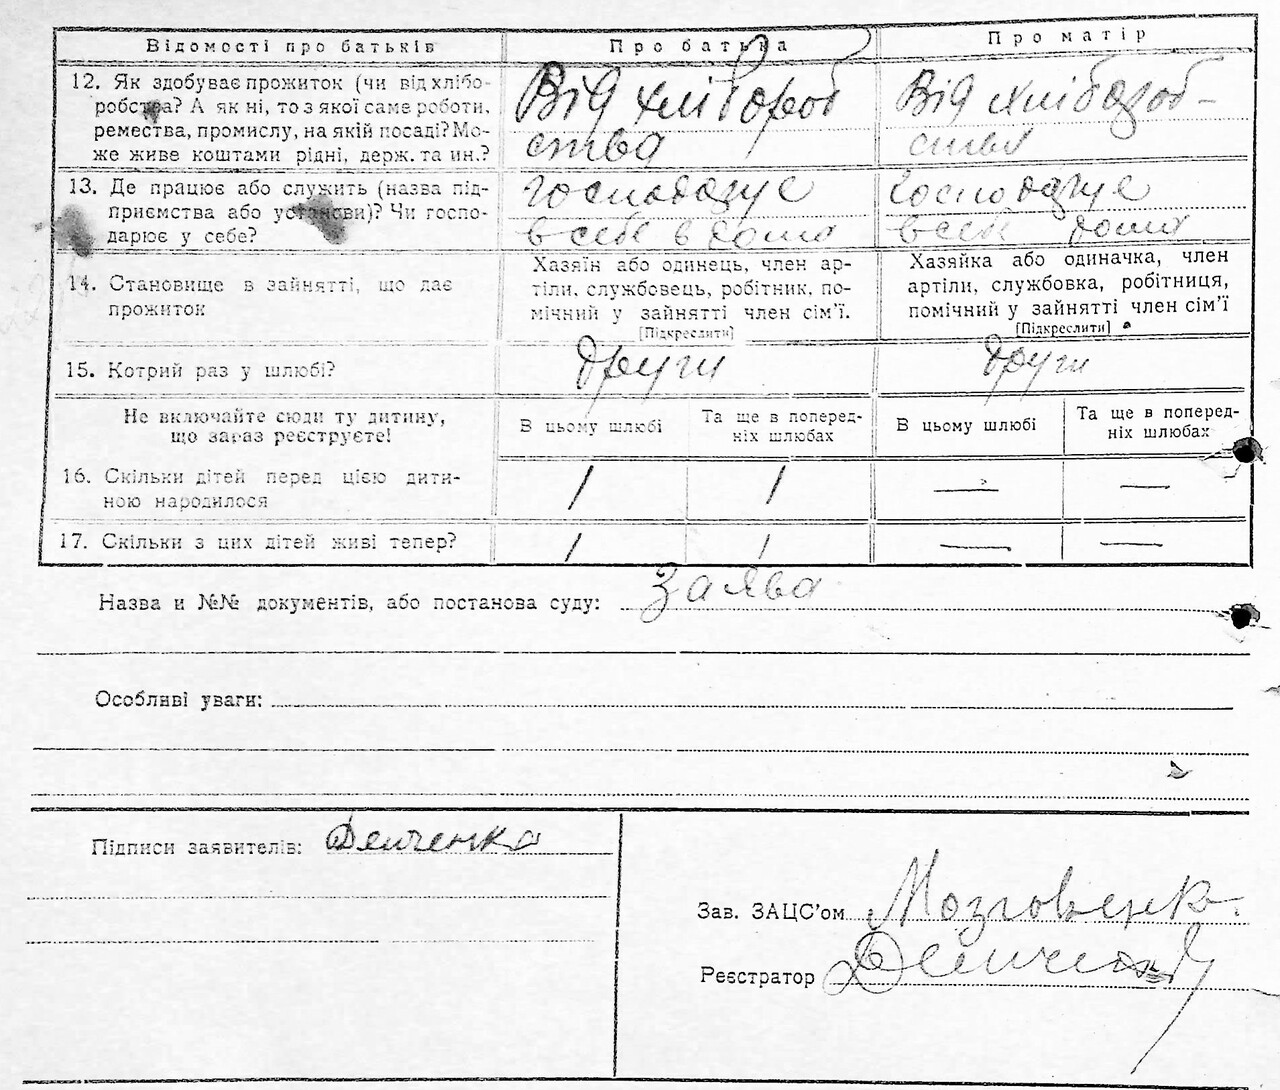 Відомості про батьків Про батька Про матір
12. Як здобуває прожиток (чи від хлібо-
робства? А як ні, то з якої саме роботи,
ремества, промислу, на якій посаді? Мо-
же живе коштами рідні, держ. та ин.?
Від хлібороб
ства
Від хлібороб-
ства
13. Де працює або служить (назва під-
приємства або установи)? Чи госпо-
дарює у себе?
господарує
в себе в дома
господарує
в себе дома
14. Становище в зайнятті, що дає
прожиток
Хазяїн або одинець, член ар-
тіли, службовець, робітник, по-
мічний у зайнятті член сім'ї.
[Підкреслити]
Хазяйка або одиначка, член
артіли, службовка, робітниця,
помічний у зайнятті член сім'ї
[Підкреслити]
15. Котрий раз у шлюбі? други други
Не включайте сюди ту дитину,
що зараз реєструєте!
В цьому шлюбі
Та ще в поперед-
ніх шлюбах
В цьому шлюбі
Та ще в поперед-
ніх шлюбах
16. Скільки дітей перед цією дити-
ною народилося
1 1 — —
17. Скільки з цих дітей живі тепер? 1 1 — —
Назва и №№ документів, або постанова суду: заява
Особливі уваги:
Підписи заявителів: Демченка
Зав. ЗАЦС'ом Мозговенк
Реєстратор